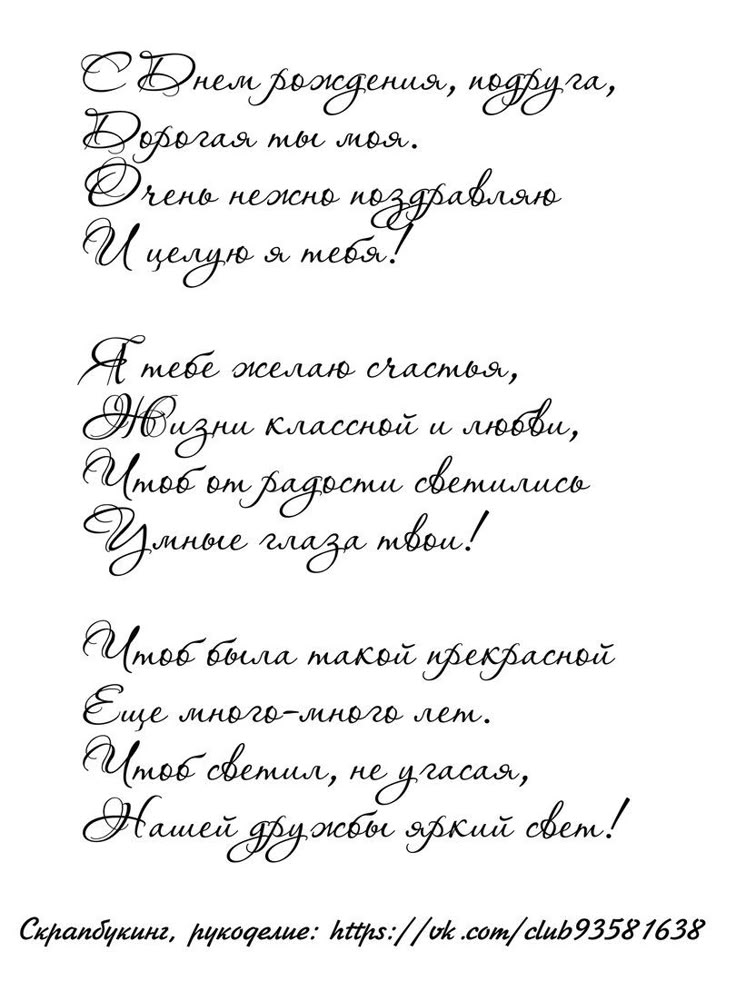 С Днем рождения, подруга,
Дорогая ты моя.
Очень нежно поздравляю
И целую я тебя!
Я тебе желаю счастья,
Жизни классной и любви,
Чтоб от радости светились
Умные глаза твои!
Чтоб была такой прекрасной
Еще много-много лет.
Чтоб светил, не угасая,
Нашей дружбы яркий свет!
Скрапбукинг, рукоделие: https://vk.com/club93581638